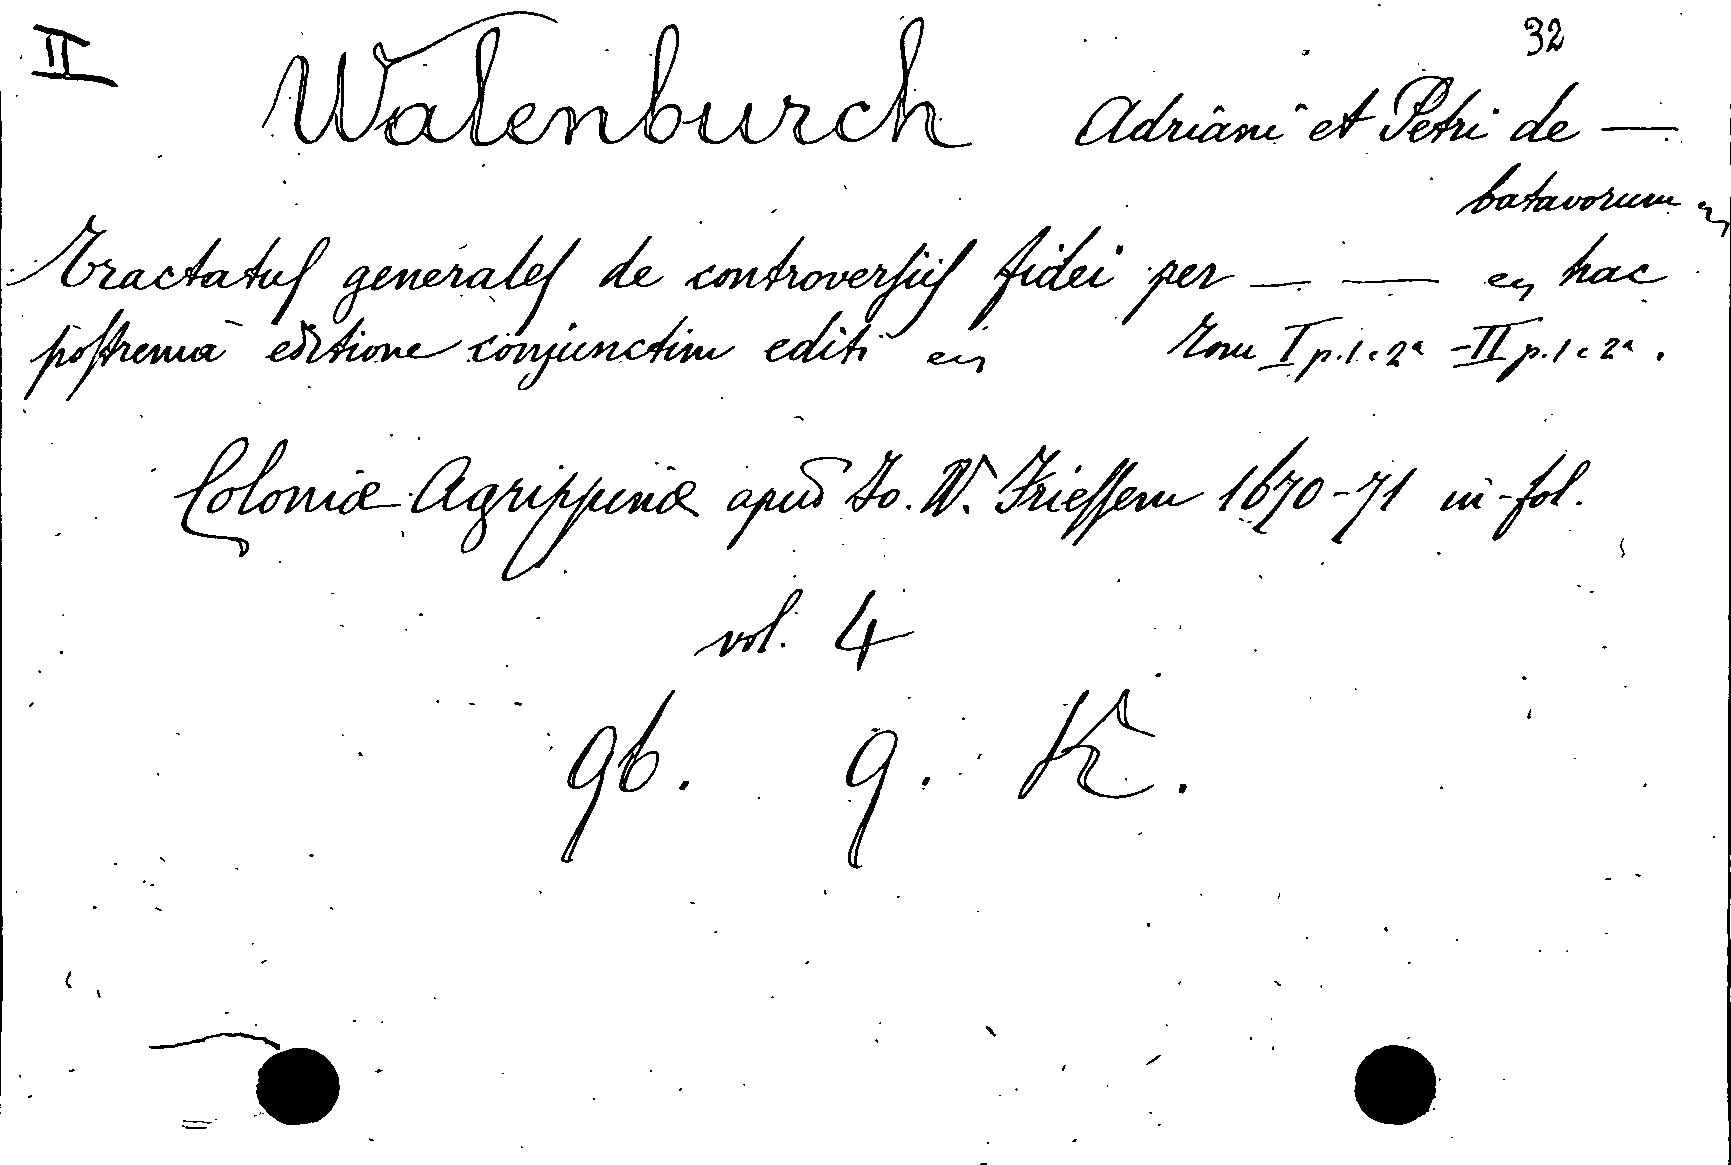 II 32
Walenburch Adriani et Petri de —
batavorum
Tractatus generales de controversiis fidei per — — hac
postrema editione conjunctim editi Tom I p. 1 e 2ª - II p. 1 e 2ª.
Coloniæ Agrippinæ apud Jo. W. Friessem 1670-71 in-fol.
vol. 4
96. 9. K.